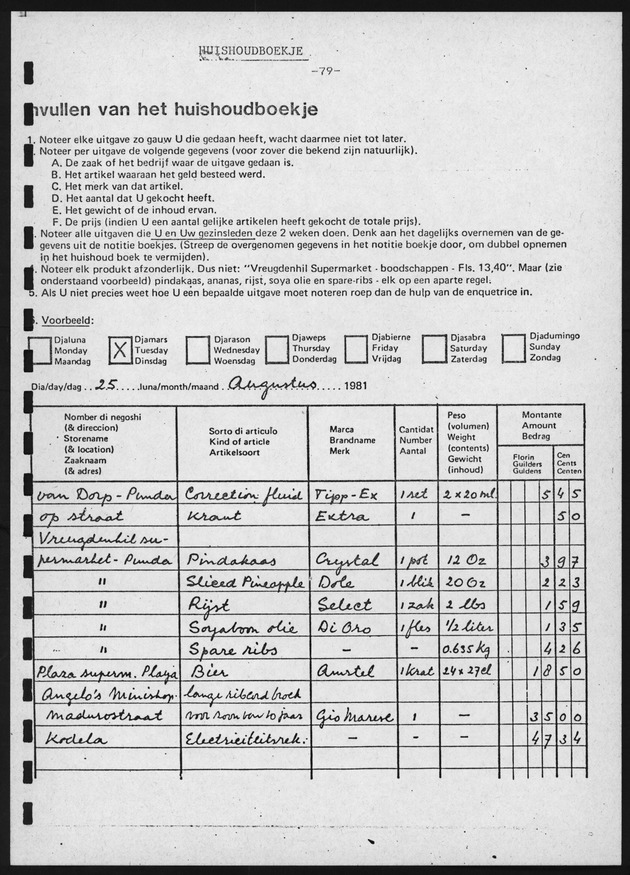 HUISHOUDBOEKJE
-79-
nvullen van het huishoudboekje
1. Noteer elke uitgave zo gauw U die gedaan heeft, wacht daarmee niet tot later.
. Noteer per uitgave de volgende gegevens (voor zover die bekend zijn natuurlijk).
A. De zaak of het bedrijf waar de uitgave gedaan is.
B. Het artikel waaraan het geld besteed werd.
C. Het merk van dat artikel.
D. Het aantal dat U gekocht heeft.
E. Het gewicht of de inhoud ervan.
F. De prijs (indien U een aantal gelijke artikelen heeft gekocht de totale prijs).
. Noteer alle uitgaven die U en Uw gezinsleden deze 2 weken doen. Denk aan het dagelijks overnemen van de ge-
gevens uit de notitie boekjes. (Streep de overgenomen gegevens in het notitie boekje door, om dubbel opnemen
in het huishoud boek te vermijden).
4. Noteer elk produkt afzonderlijk. Dus niet: "Vreugdenhil Supermarket - boodschappen - Fls. 13,40". Maar (zie
onderstaand voorbeeld) pindakaas, ananas, rijst, soya olie en spare-ribs - elk op een aparte regel.
5. Als U niet precies weet hoe U een bepaalde uitgave moet noteren roep dan de hulp van de enquetrice in.
. Voorbeeld:
Djaluna Monday Maandag
X Djamars Tuesday Dinsdag
Djarason Wednesday Woensdag
Djaweps Thursday Donderdag
Djabierne Friday Vrijdag
Djasabra Saturday Zaterdag
Djadumingo Sunday Zondag
Dia/day/dag . . 25 . . . . .luna/month/maand . Augustus . . . . . 1981
Number di negoshi (& direccion) Storename (& location) Zaaknaam (& adres)
Sorto di articulo Kind of article Artikelsoort
Marca Brandname Merk
Cantidat Number Aantal
Peso (volumen) Weight (contents) Gewicht (inhoud)
Montante Amount Bedrag
Florin Guilders Guldens
Cen Cents Centen
van Dorp - Punda Correction fluid Tipp-Ex 1 set 2 x 20 ml. 5 4 5
op straat Krant Extra 1 — 5 0
Vreugdenhil su-
permarket - Punda Pindakaas Crystal 1 pot 12 Oz 3 9 7
" Sliced Pineapple Dole 1 blik 20 Oz 2 2 3
" Rijst Select 1 zak 2 lbs 1 5 9
" Soyaboon olie Di Oro 1 fles 1/2 liter 1 3 5
" Spare ribs — — 0.635 Kg 4 2 6
Plaza superm. Playa Bier Amstel 1 krat 24 x 27 cl 1 8 5 0
Angelo's Minishop. lange ribcord broek
Madurostraat voor zoon van 10 jaar Gio Marese 1 — 3 5 0 0
Kodela Electriciteitsrek. — — — 4 7 3 4